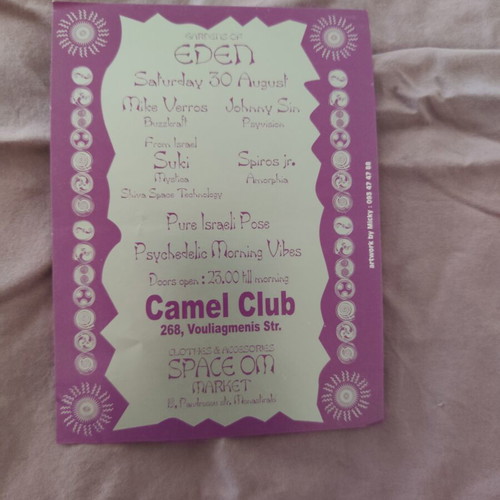 GARDENS OF
EDEN
Saturday 30 August
Mike Verros Johnny Sin
Buzzkraft Psyvision
From Israel
Suki Spiros jr.
Mystica Amorphia
Shiva Space Technology
Pure Israeli Pose
Psychedelic Morning Vibes
Doors open : 23.00 till morning
Camel Club
268, Vouliagmenis Str.
CLOTHES & ACCESSORIES
SPACE OM
MARKET
str, Monastiraki
artwork by Micky : 098 47 47 88